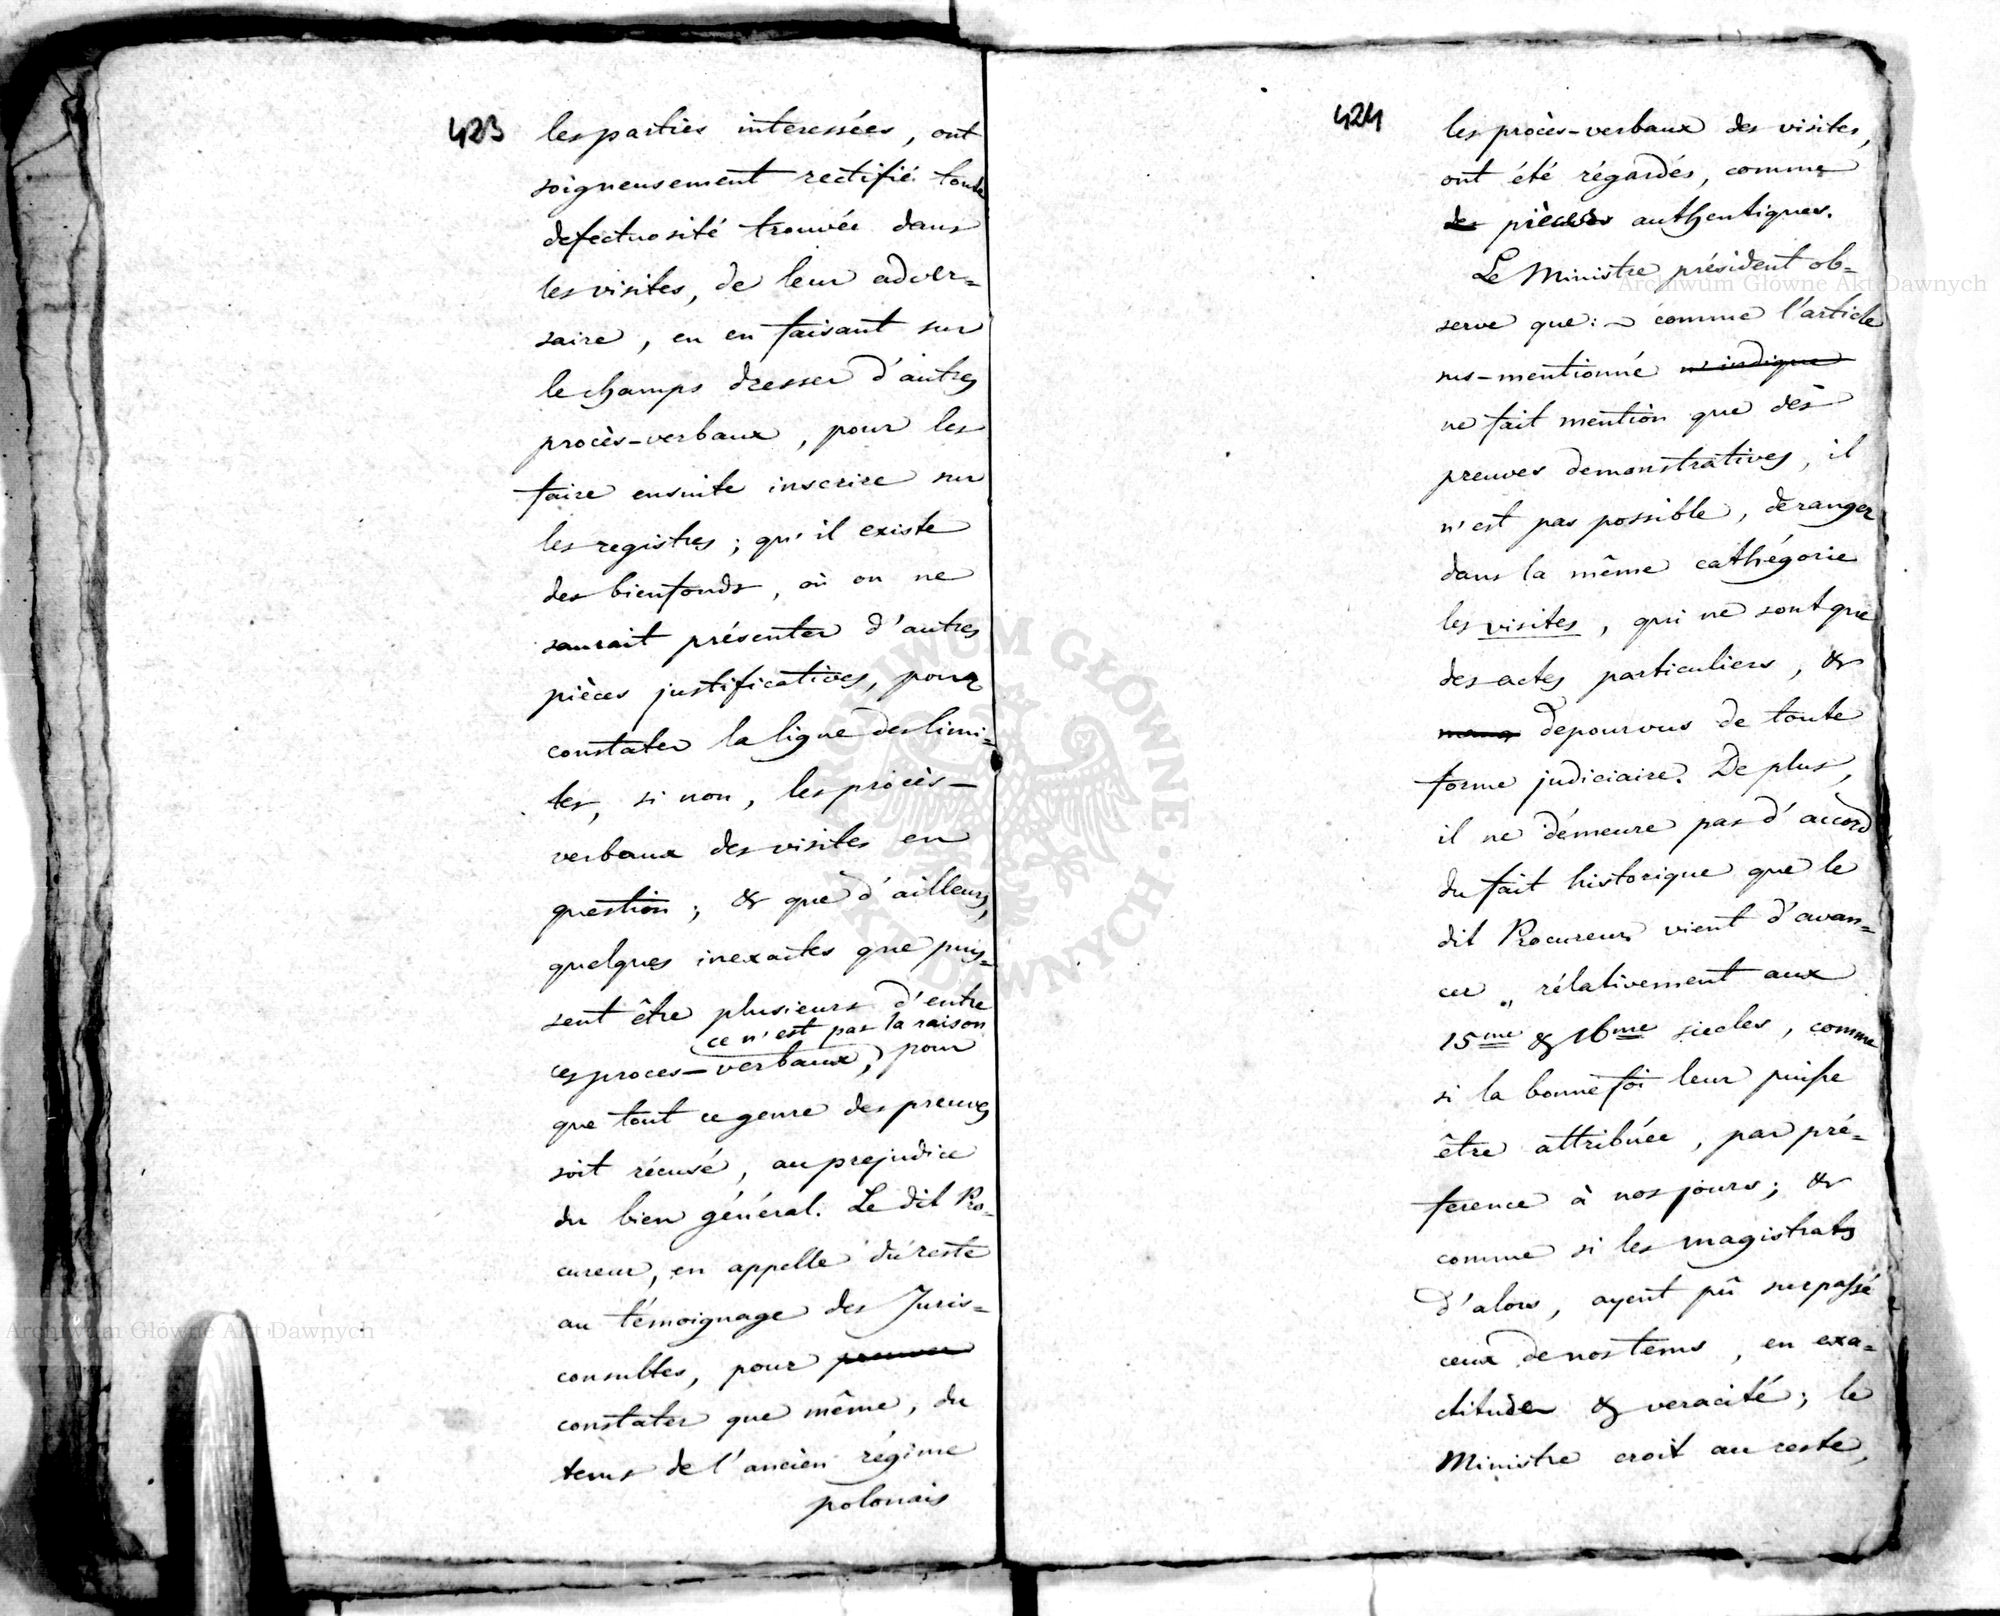 423
les parties interessées, ont
soigneusement rectifié toute
defectuosité trouvée dans
les visites, de leur adver=
saire, en en faisant sur
le champs dresser d'autres
procès-verbaux, pour les
faire ensuite inscrire sur
les registres; qu'il existe
des bienfonds, où on ne
saurait présenter d'autres
pièces justificatives, pour
constater la ligne des limi=
tes, si non, les procès-
verbaux des visites en
question; & que d'ailleurs,
quelques inexactes que puis=
sent être plusieurs d'entre
ce n'est pas la raison
ces proces-verbaux, pour
que tout ce genre des preuves
soit récusé, au prejudice
du bien général. Le dit Pro=
cureur, en appelle du reste
au témoignage des Juris=
consultes, pour preuver
constater que même, du
tems de l'ancien régime
polonais
424
les procès-verbaux des visites,
ont été régardés, comme
des pièces authentiques.
Le Ministre président ob=
serve que: comme l'article
sus-mentionné n'indique
ne fait mention que des
preuves demonstratives, il
n'est pas possible, de ranger
dans la même cathégorie
les visites, qui ne sont que
des actes particuliers, &
depourvus de toute
forme judiciaire. De plus,
il ne démeure pas d'accord
du fait historique que le
dit Procureur vient d'avan=
cer „ rélativement aux
15me & 16me siecles, comme
si la bonne foi leur puisse
être attribuée, par pré=
ference à nos jours; &
comme si les magistrats
d'alors, ayent pû surpassé
ceux de nos tems, en exa=
ctitude & veracité; le
Ministre croit au reste,
Archiwum Główne Akt Dawnych
Archiwum Główne Akt Dawnych
ARCHIWUM GŁÓWNE AKT DAWNYCH